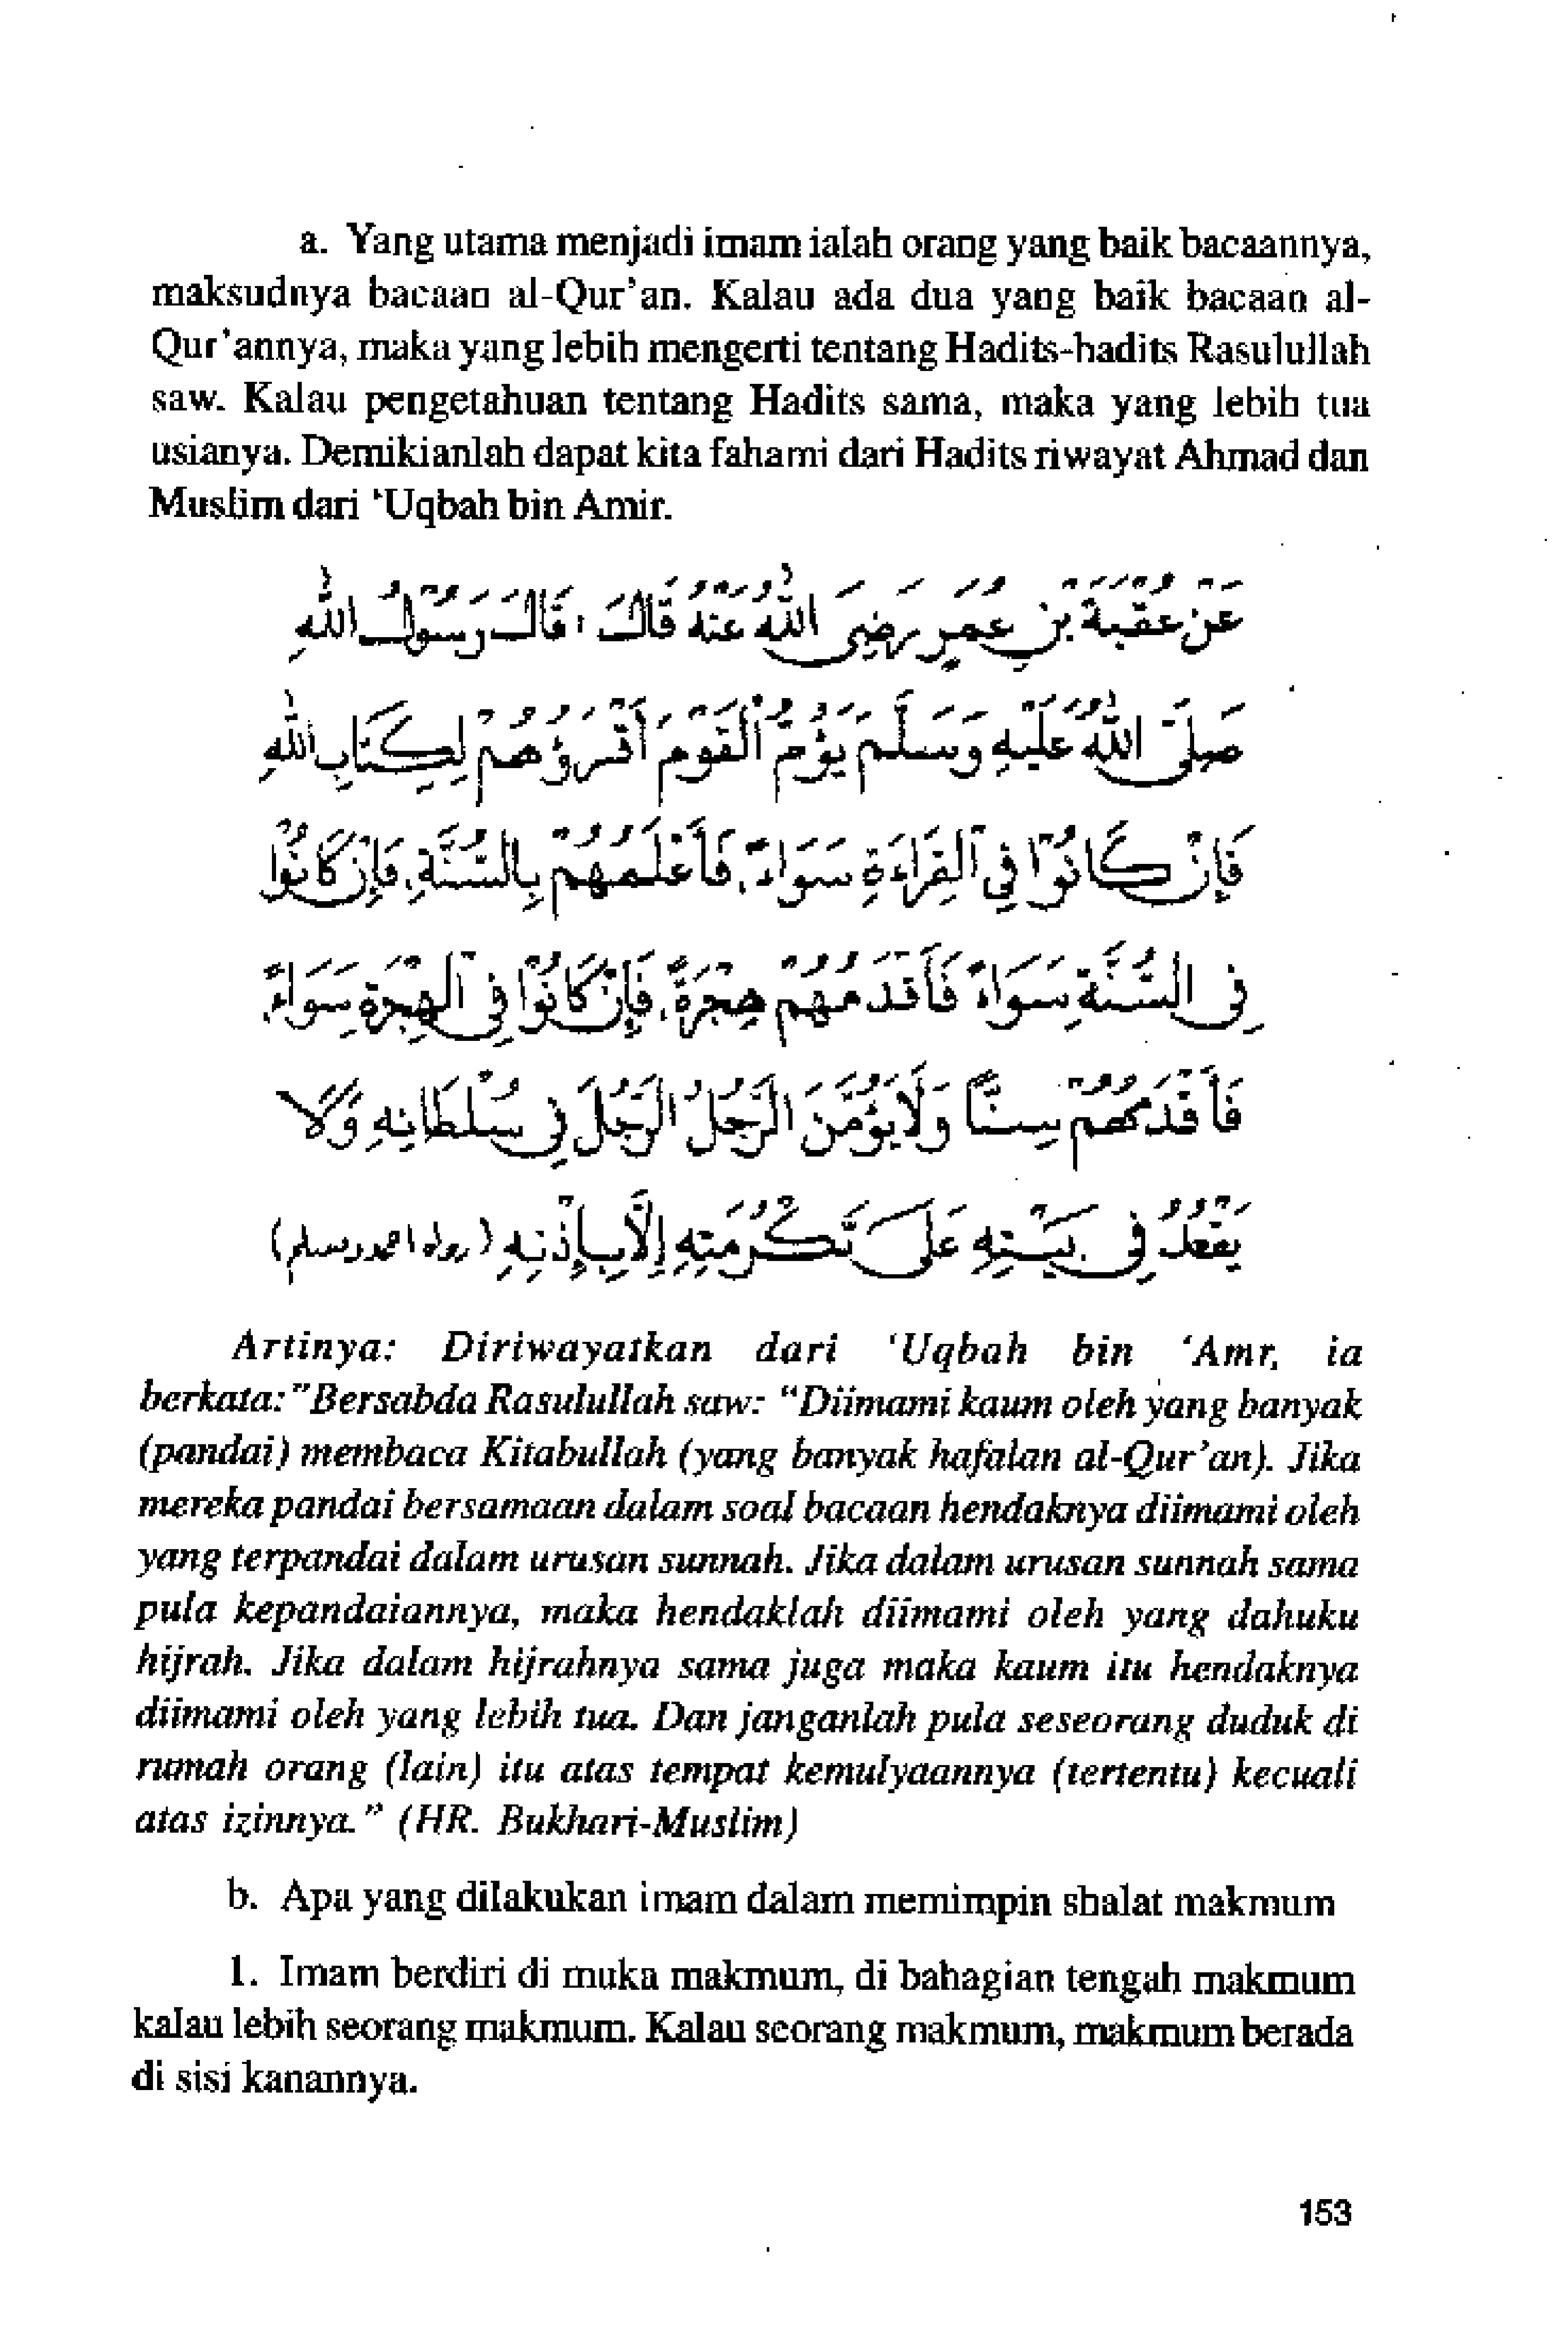 a. Yang utama menjadi imam ialah orang yang baik bacaannya,
maksudnya bacaan al-Qur'an. Kalau ada dua yang baik bacaan al-
Qur'annya, maka yang lebih mengerti tentang Hadits-hadits Rasulullah
saw. Kalau pengetahuan tentang Hadits sama, maka yang lebih tua
usianya. Demikianlah dapat kita fahami dari Hadits riwayat Ahmad dan
Muslim dari 'Uqbah bin Amir.
عَنْ عُقْبَةَ بْنِ عُمَرٍ رَضِيَ اللهُ عَنْهُ قَالَ ، قَالَ رَسُوْلُ اللهِ
صَلَّى اللهُ عَلَيْهِ وَسَلَّمَ يَؤُمُّ الْقَوْمَ أَقْرَؤُهُمْ لِكِتَابِ اللهِ
فَإِنْ كَانُوْا فِي الْقِرَاءَةِ سَوَاءً، فَأَعْلَمُهُمْ بِالسُّنَّةِ، فَإِنْ كَانُوْا
فِى السُّنَّةِ سَوَاءً فَأَقْدَمُهُمْ هِجْرَةً، فَإِنْ كَانُوْا فِى الْهِجْرَةِ سَوَاءً،
فَأَقْدَمُهُمْ سِنًّا وَلَا يَؤُمَّنَّ الرَّجُلُ الرَّجُلَ فِى سُلْطَانِهِ وَلَا
يَقْعُدُ فِى بَيْتِهِ عَلَى تَكْرُمَتِهِ إِلَّا بِإِذْنِهِ (رواه احمد ومسلم)
Artinya: Diriwayatkan dari 'Uqbah bin 'Amr, ia
berkata: "Bersabda Rasulullah saw: "Diimami kaum oleh yang banyak
(pandai) membaca Kitabullah (yang banyak hafalan al-Qur'an). Jika
mereka pandai bersamaan dalam soal bacaan hendaknya diimami oleh
yang terpandai dalam urusan sunnah. Jika dalam urusan sunnah sama
pula kepandaiannya, maka hendaklah diimami oleh yang dahuku
hijrah. Jika dalam hijrahnya sama juga maka kaum itu hendaknya
diimami oleh yang lebih tua. Dan janganlah pula seseorang duduk di
rumah orang (lain) itu atas tempat kemulyaannya (tertentu) kecuali
atas izinnya." (HR. Bukhari-Muslim)
b. Apa yang dilakukan imam dalam memimpin shalat makmum
1. Imam berdiri di muka makmum, di bahagian tengah makmum
kalau lebih seorang makmum. Kalau seorang makmum, makmum berada
di sisi kanannya.
153